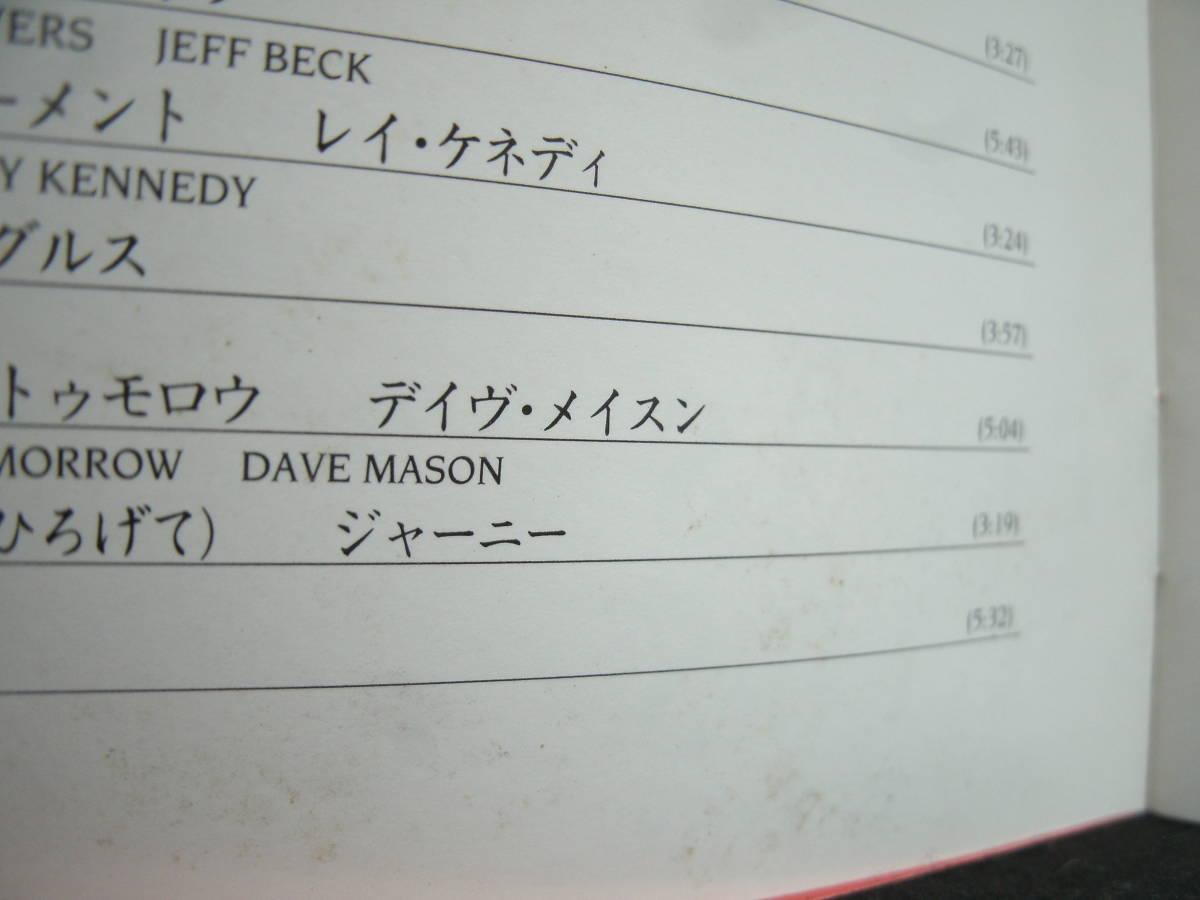 (3:27)
VERS JEFF BECK
(5:43)
ーメント レイ・ケネディ
Y KENNEDY
(3:24)
グルス
(3:57)
トゥモロウ デイヴ・メイスン
(5:04)
MORROW DAVE MASON
ひろげて) ジャーニー
(3:19)
(5:32)